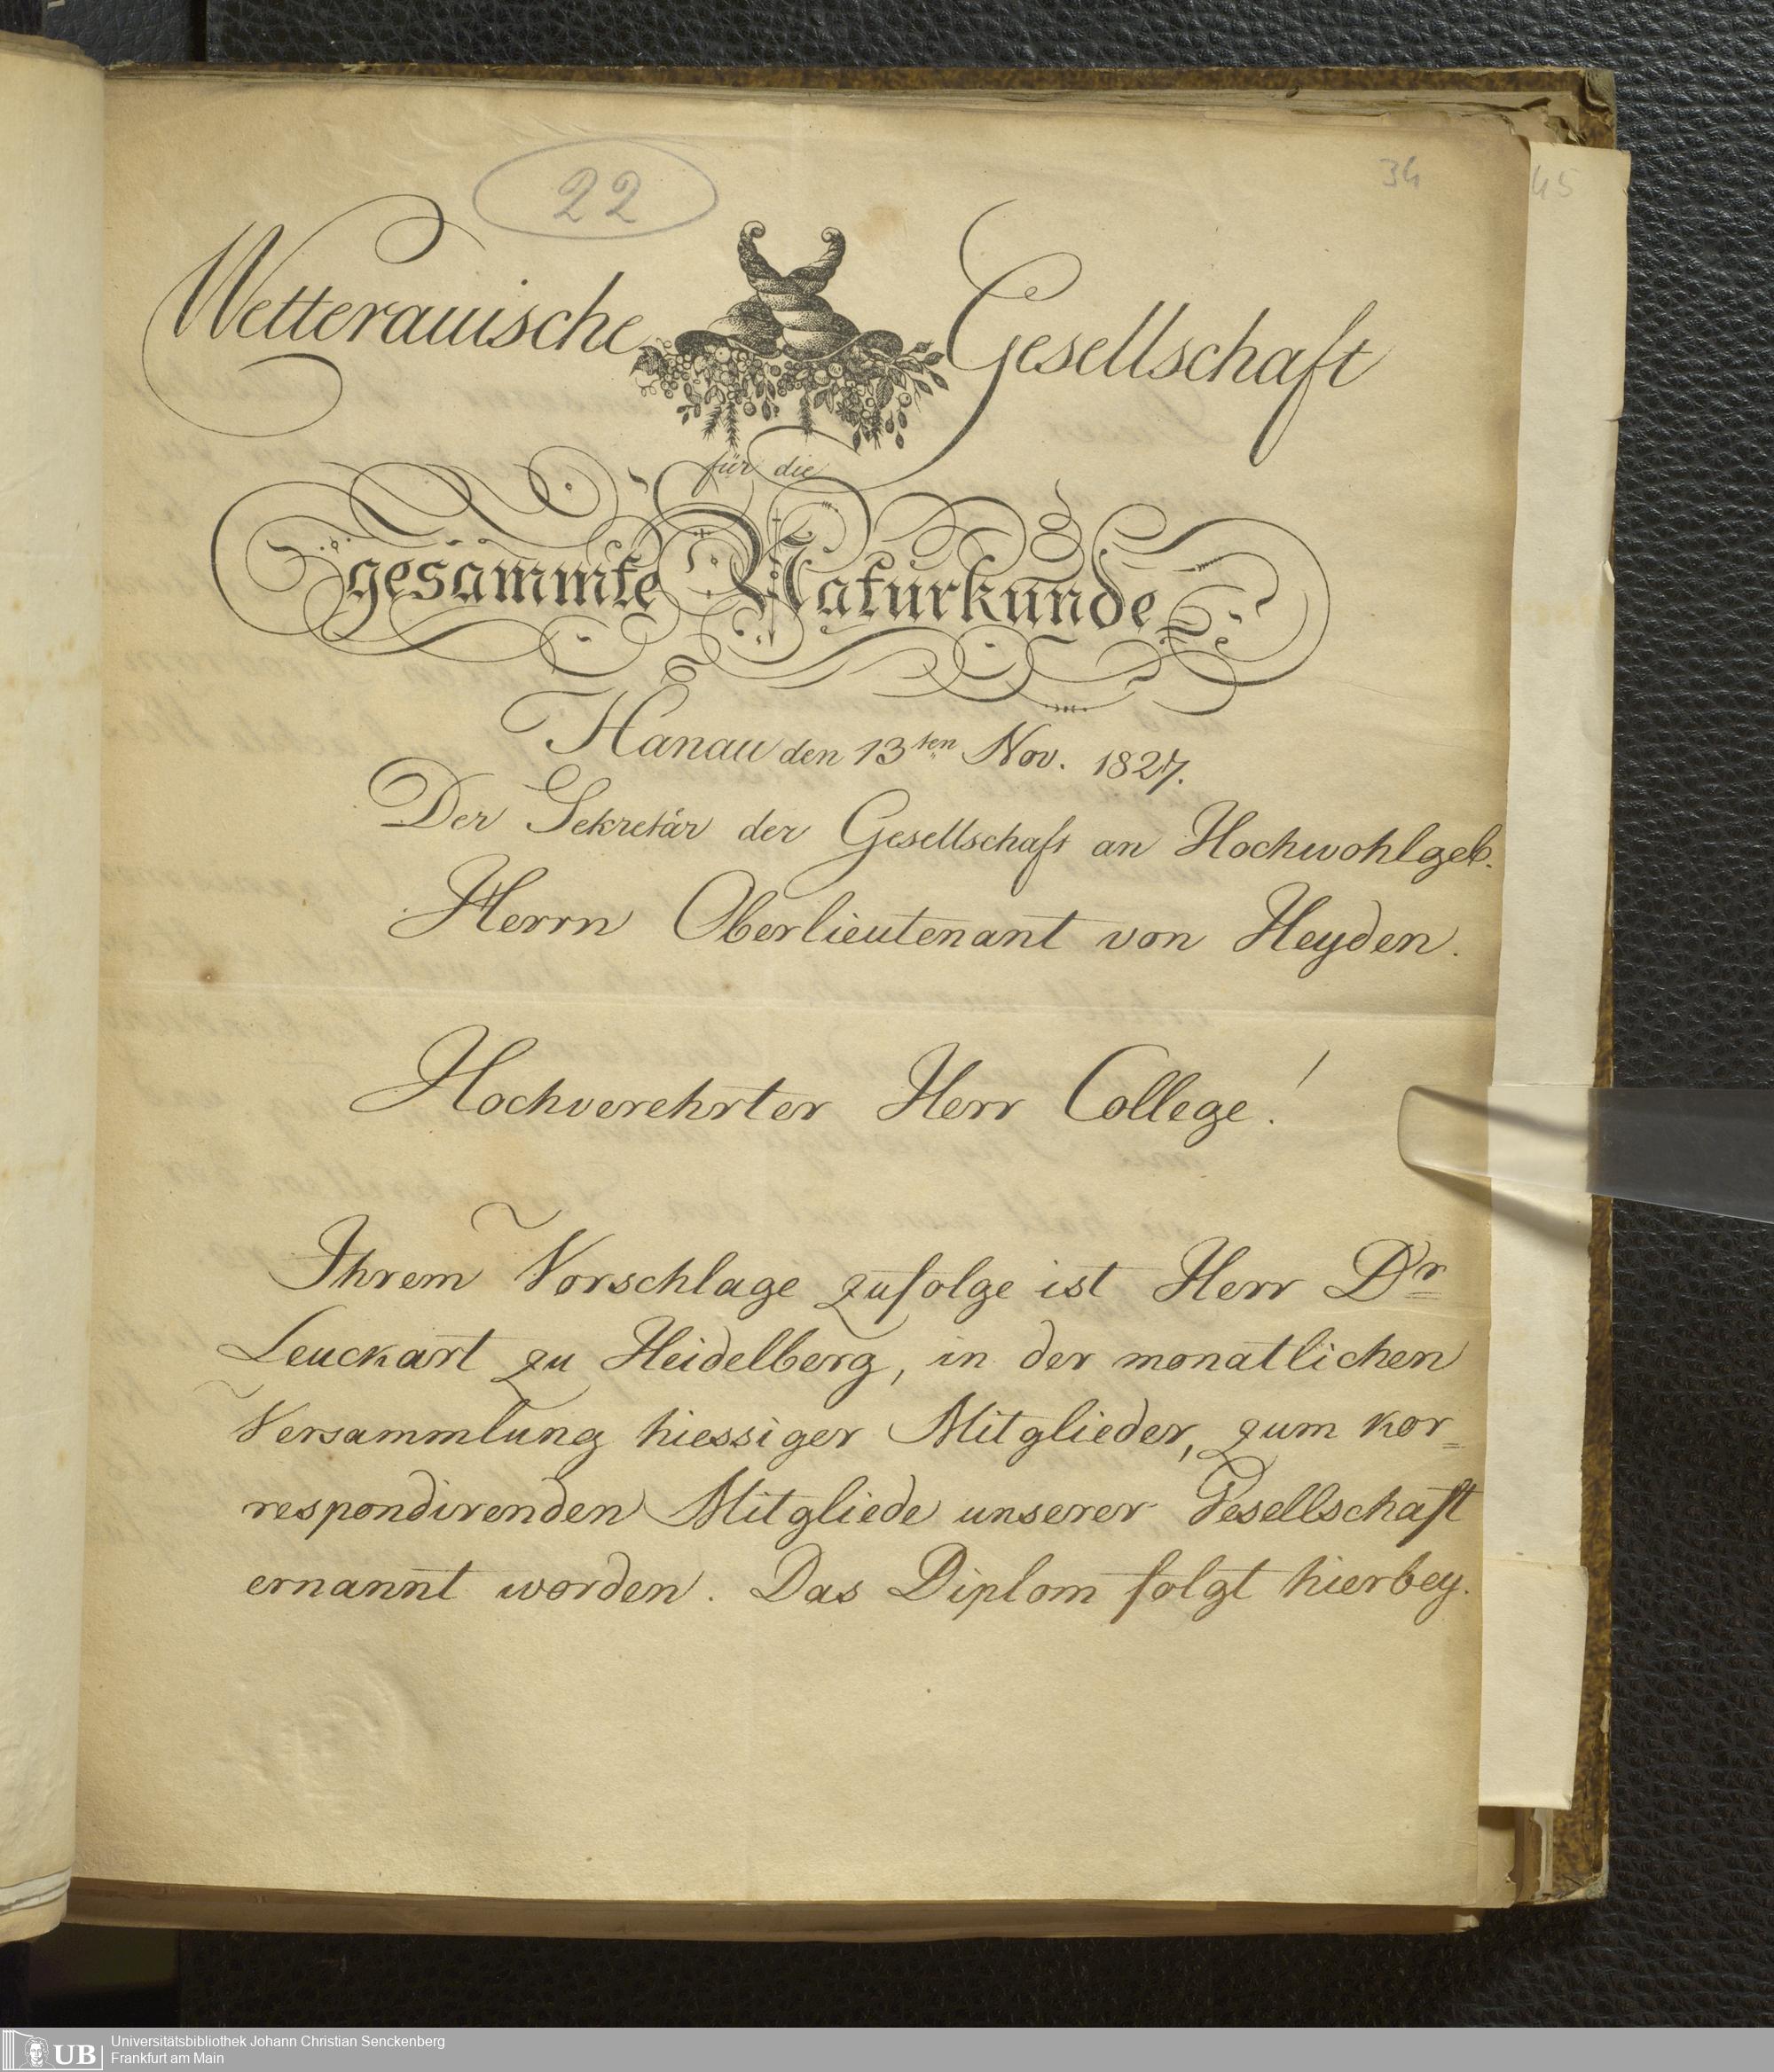 22
34
45
Wetterauische Gesellschaft
für die
gesammte Naturkunde
Hanau den 13ten Nov. 1827.
Der Sekretär der Gesellschaft an Hochwohlgeb.
Herrn Oberlieutenant von Heyden.
Hochverehrter Herr College!
Ihrem Vorschlage zufolge ist Herr Dr
Leuckart zu Heidelberg, in der monatlichen
Versammlung hiessiger Mitglieder, zum kor=
respondirenden Mitgliede unserer Gesellschaft
ernannt worden. Das Diplom folgt hierbey.
UB
Universitätsbibliothek Johann Christian Senckenberg
Frankfurt am Main